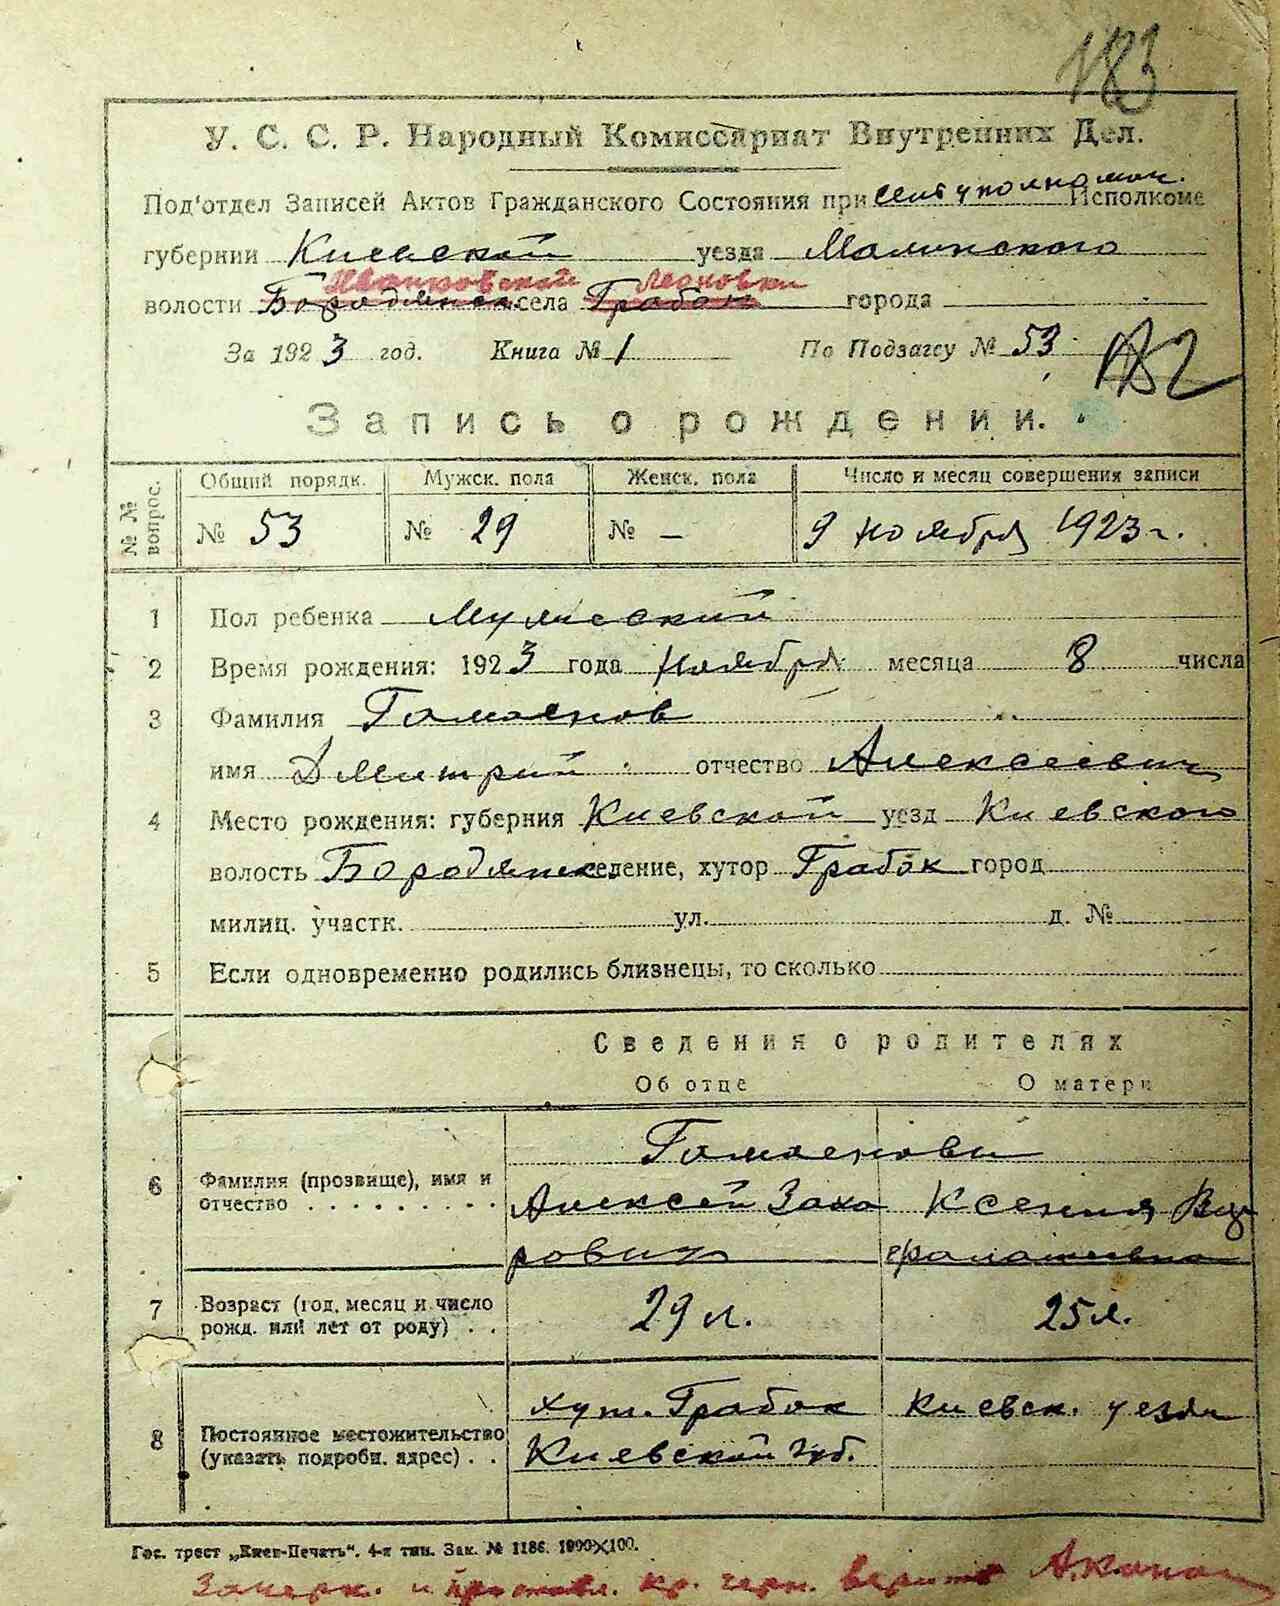 183
У. С. С. Р. Народный Комиссариат Внутренних Дел.
Под'отдел Записей Актов Гражданского Состояния при Исполкоме
губернии Киевской уезда Малинского
Иванковской Леоновки
волости Бородянск. села Грабок города
За 1923 год. Книга № 1 По Подзагсу № 53
Запись о рождении.
№ № вопрос. Общий порядк. Мужск. пола Женск. пола Число и месяц совершения записи
№ 53 № 29 № — 9 ноября 1923 г.
1 Пол ребенка Мужеский
2 Время рождения: 1923 года Ноября месяца 8 числа
3 Фамилия
имя Дмитрий отчество Алексеевич
4 Место рождения: губерния Киевской уезд Киевского
волость Бородянск селение, хутор Грабок город
милиц. участк. ул. д. №
5 Если одновременно родились близнецы, то сколько
Сведения о родителях
Об отце О матери
6 Фамилия (прозвище), имя и отчество
Алексей Заха Ксения
рович
7 Возраст (год, месяц и число рожд. или лет от роду) . . 29 л. 25 л.
8 Постоянное местожительство (указать подробн. адрес) . . хут. Грабок Киевск. уезда
Киевской губ.
Гос. трест „Киев-Печать". 4-я тип. Зак. № 1186. 1000×100.
Зачерк. и кр. черн. верить